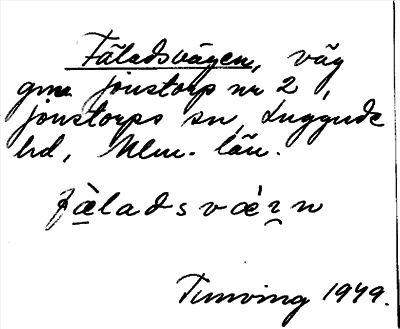 Fäladsvägen, väg
gm Jonstorp nr 2,
Jonstorps sn, Luggude
hd, Mlm. län.
fæ̀ladsvǽɪ̯n
Tunving 1949.